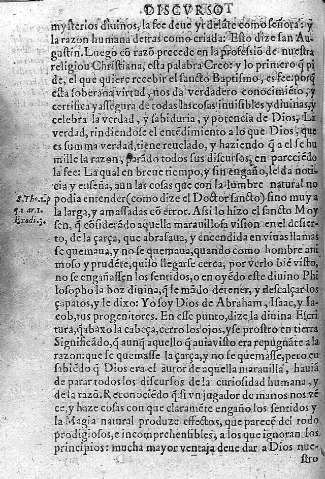 DISCVRSO T
mysterios diuinos, la fee deue yr delãte como señora: y
la razon humana detras como criada: Esto dize san Au-
gustin. Luego cõ razõ precede en la professiõ de nuestra
religiou Christiana, esta palabra Creo: y lo primero q̃ pi
de, el que quiere recebir el sancto Baptismo, es fee: porq̃
esta soberana virtud, nos da verdadero conocimiẽto, y
certifica y assegura de todas las cosas inuisibles y diuinas, y
celebra la verdad, y sabiduria, y potencia de Dios, La
verdad, rindiendose el entẽdimiento a lo que Dios, que
es summa verdad, tiene reuelado, y haziendo q̃ a el se hu
mille la razon, parãdo todos sus discursos, en pareciẽdo
la fee: La qual en breue tiempo, y sin engaño, le da noti
cia y enseña, aun las cosas que con la lumbre natural no
podia entender (como dize el Doctor sancto) sino muy a
la larga, y amassadas cõ error. Asi lo hizo el sancto Moy
sen, q̃ cõsiderãdo aquella marauillosa vision en el desier-
to, de la çarça, que abrasaua, y encendida en viuas llamas
se quemaua, y no se quemaua, quando como hombre ani
moso y prudẽte, quiso llegarse cerca, por verlo biẽ visto,
no se engañassen los sentidos, o en oyẽdo este diuino Phi
losopho la boz diuina, q̃ le mãdo detener, y descalçar los
çapatos, y le dixo: Yo soy Dios de Abraham, Isaac, y Ia-
cob, tus progenitores. En esse punto, dize la diuina Escri
tura, q̃ baxo la cabeça, cerro los ojos, y se prostro en tierra
Significãdo, q̃ aunq̃ aquello q̃ auia visto era repugnãte a la
razon: que se quemasse la çarça, y no se quemasse, pero en
sabiẽdo q̃ Dios era el autor de aquella marauilla, hauia
de parar todos los discursos de la curiosidad humana, y
de la razõ. Reconociẽdo q̃ si vn jugador de manos nos vẽ
ce, y haze cosas con que claramẽte engaña los sentidos y
la Magia natural produze effectos, que parecẽ del todo
prodigiosos, e incomprehensibles, a los que ignoran los
principios: mucha mayor ventaja deue dar a Dios nue-
stro
S. Tho. 2. p
q. 2. ar. 1.
Exodi. 3.